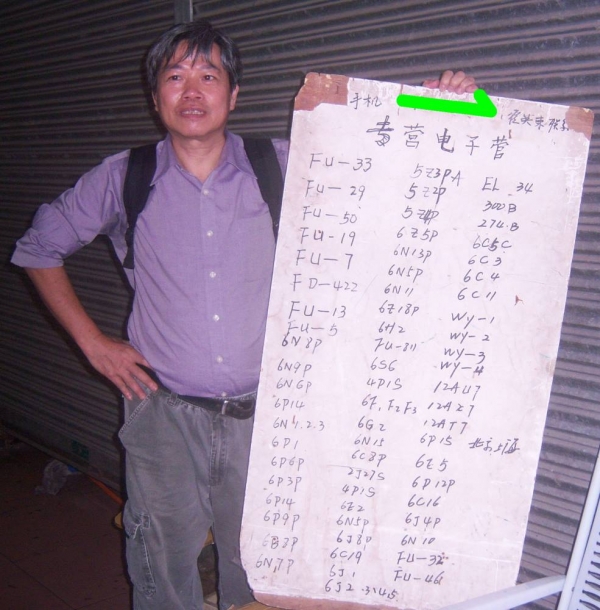 手机
专营电子管
FU-33 5Z3PA EL 34
FU-29 5Z2P 300B
FU-50 5Z4P 274-B
FU-19 6Z5P 6C5C
FU-7 6N13P 6C3
FD-422 6N5P 6C4
FU-13 6N11 6C11
FU-5 6Z18P WY-1
6N8P 6H2 WY-2
6N9P FU-811 WY-3
6N6P 6S6 WY-4
6P14 4P1S 12AU7
6N1.2.3 6F1F2F3 12AX7
6P1 6G2 12AT7
6P6P 6N15 6P15 北京上海
6P3P 6C8P 6Z5
6P14 2J27S 6P12P
6P9P 4P1S 6C16
6B8P 6Z2 6J4P
6N7P 6N5P 6N10
6J8P FU-32
6C19 FU-46
6J1
6J2 .3.4.5